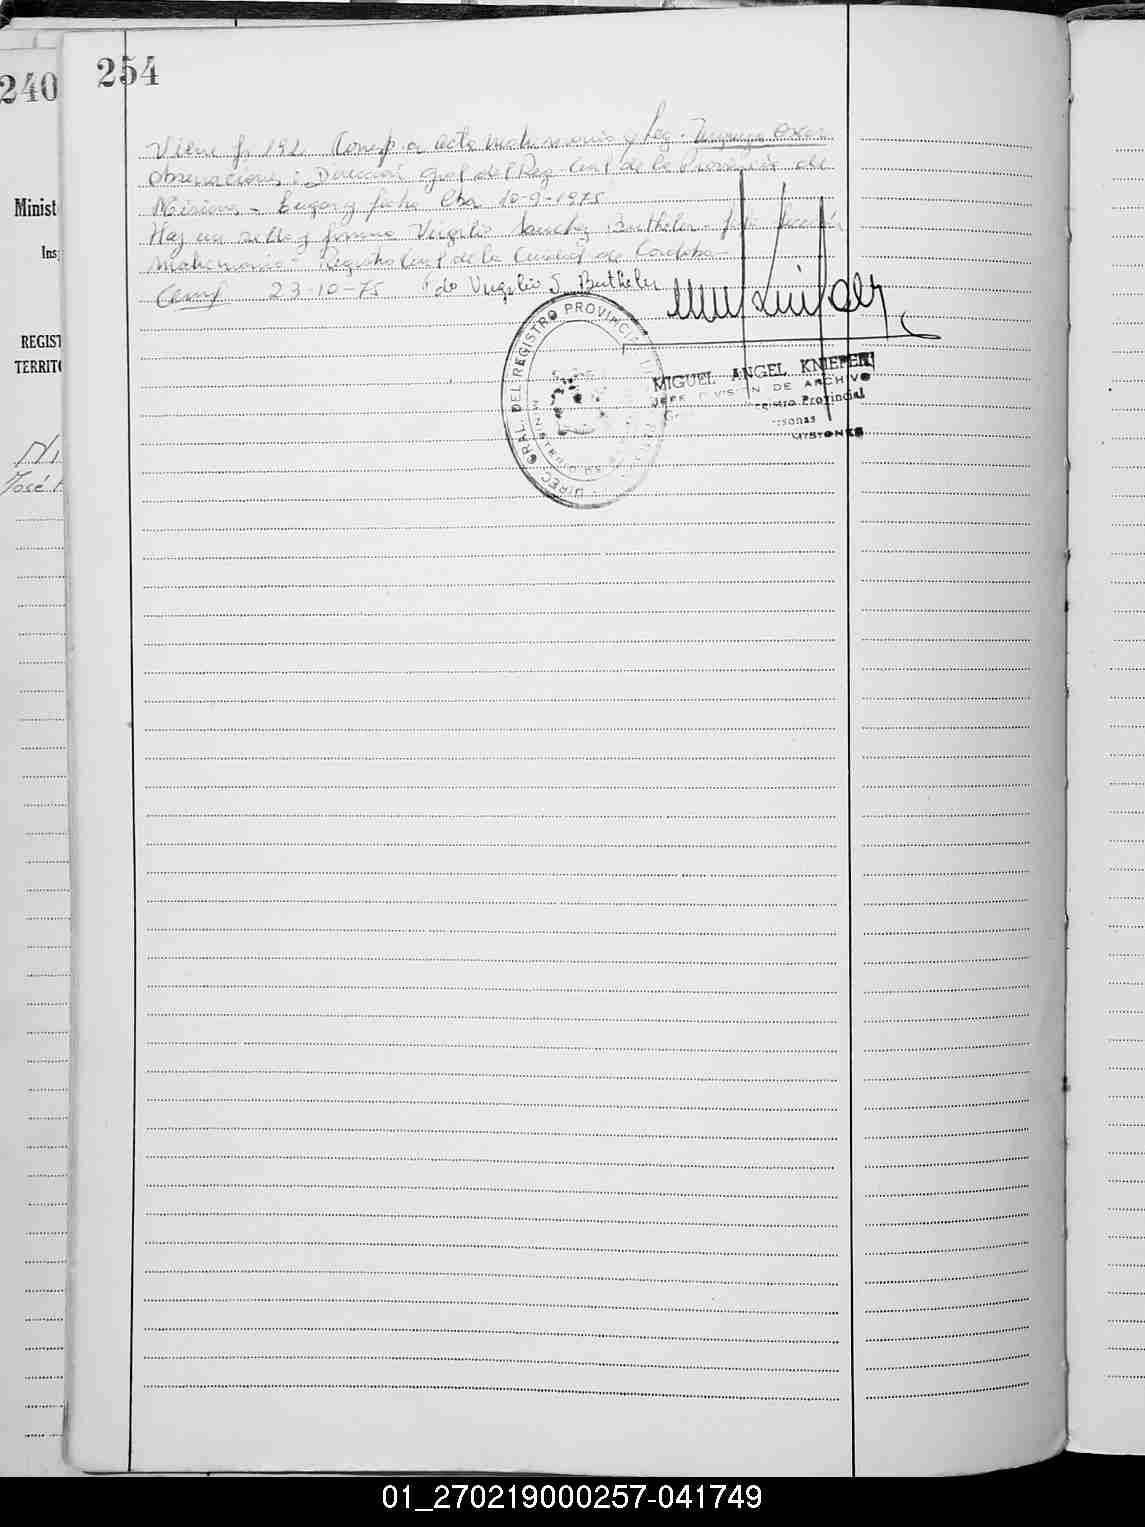 240
254
Minist
Ins
REGIST
TERRITO
José
Viene f. 192. Corresp a acta matrimonio y Leg.
observaciones: Dirección Gral del Reg. Civil de la Provincia de
Misiones - Lugar y fecha Cba 10-9-1975
Hay un sello y firma Virgilio Sanchez Butheler - Jefe Sección
Matrimonio - Registro Civil de la Ciudad de Córdoba -
23-10-75 fdo Virgilio S. Butheler
DIREC. GRAL. DEL REGISTRO PROVINCIAL
MINISTERIO DE
MIGUEL ANGEL KNIEPER
JEFE DIVISION DE ARCHIVO
Registro Provincial
Personas
MISIONES
01_270219000257-041749